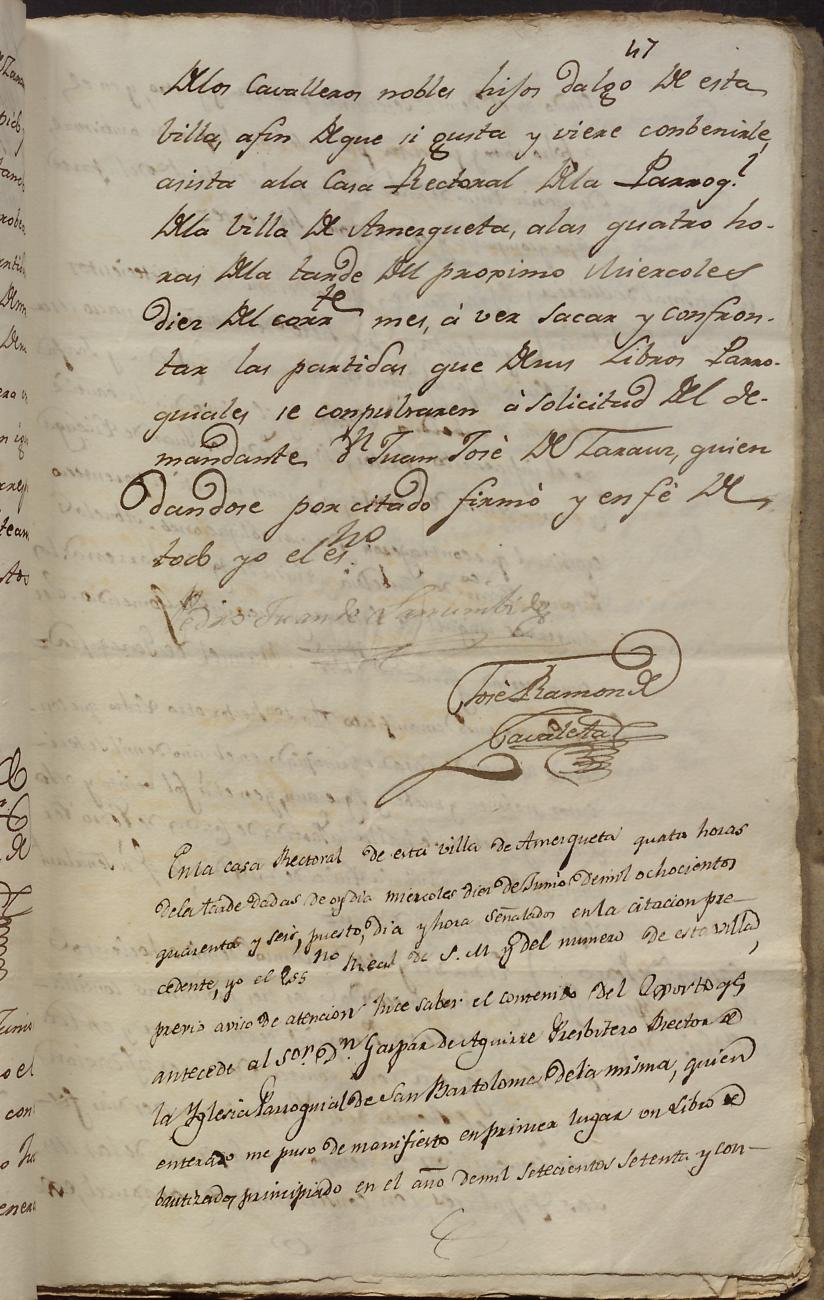 47
Delos Cavalleros nobles hijos dalgo De esta
villa, afin Deque si gusta y viere conbenirle,
asista ala Casa Rectoral Dela Parroq.l
Dela villa De Amezqueta, alas quatro ho-
ras Dela tarde Del proximo Miercoles
diez Del corrte mes, á ver sacar y confron-
tar las partidas que Desus Libros Parro-
quiales se conpulsaren á solicitud Del de-
mandante Dn Juan José De Zarauz, quien
dandose por citado firmó y enfé De
todo yo el esno.
Pedro Juan de
José Ramon de
Zavaleta
En la casa Rectoral de esta villa de Amezqueta quatro horas
dela tarde dadas de oy dia miercoles diez de Junio demil ochocientos
quarenta y seis, puesto, dia y hora señalados en la citacion pre-
cedente, yo el Essno Real de S. M. y del numero de esta villa,
previo aviso de atencion hice saber el contenido del Exporto qe
antecede al Sor. Dn. Gaspar de Aguirre Presbitero Rector de
la Yglesia Parroquial de San Bartolome dela misma, quien
enterado me puso de manifiesto en primer lugar un Libro de
bautizados principiado en el año demil setecientos setenta y con-